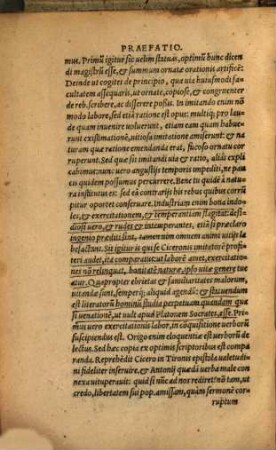 PRAEFATIO.
mus. Primũ igitur sic uelim statuas, optimũ hunc dicen
di magistrũ esse, & summum ornatæ orationis artificẽ:
Deinde ut cogites de principio, qua uia huiusmodi fa-
cultatem assequaris, ut ornate, copiose, & congruenter
de reb. scribere, ac differere possis. In imitando enim nõ
modo labore, sed etiã ratione est opus: multiq; pro lau
de quam inuenire uoluerunt, etiam eam quam babue-
runt existimationẽ, uitiosa imitatione amiserunt: & na
turam quæ ratione emendanda erat, fucoso ornatu cor
ruperunt. Sed quæ sit imitandi uia & ratio, aliàs expli
cabimus: nunc uero angustijs temporis impediti, ne pau
ca quidem possumus percurrere. Bene tu quidẽ à natu
ra institutus es: sed ea contrarijs his rebus quibus corrũ
pitur oportet conseruare. Industriam enim bona indo-
les, & exercitationem, & temperantiam flagitat: desi-
diosi uero, & rudes & intemperantes, etiã si præclaro
ingenio præditi sint, tamen omnem animi uim labe-
factant. Sit igitur is qui se Ciceronis imitatorẽ profi-
teri audet, ita comparatus, ut laborẽ amet, exercitatio
nẽ nõ relinquat, bonitatẽ naturæ, ipso uitæ genere tue
atur. Quapropter ebrietas & familiaritates malorum,
uitandæ sunt, semperq; aliquid agendũ: & adeundum
est literatorũ hominũ studia perpetuam quandam qua
si uenationẽ, ut uult apud Platonem Socrates, esse. Pri
mus uero exercitationis labor, in cõquisitione uerborũ
suscipiendus est. Origo enim eloquentiæ est uerborũ de
lectus. Sed hæc copia ex optimis scriptoribus est compa
randa. Reprehẽdit Cicero in Tironis epistola ualetudi
ni fideliter inseruire: & Antonij quædã uerba male con
nexa uituperauit: quid si nũc ad nos rediret? nõ tam, ut
credo, libertatem sui pop. amissam, quàm sermonẽ cor-
ruptum